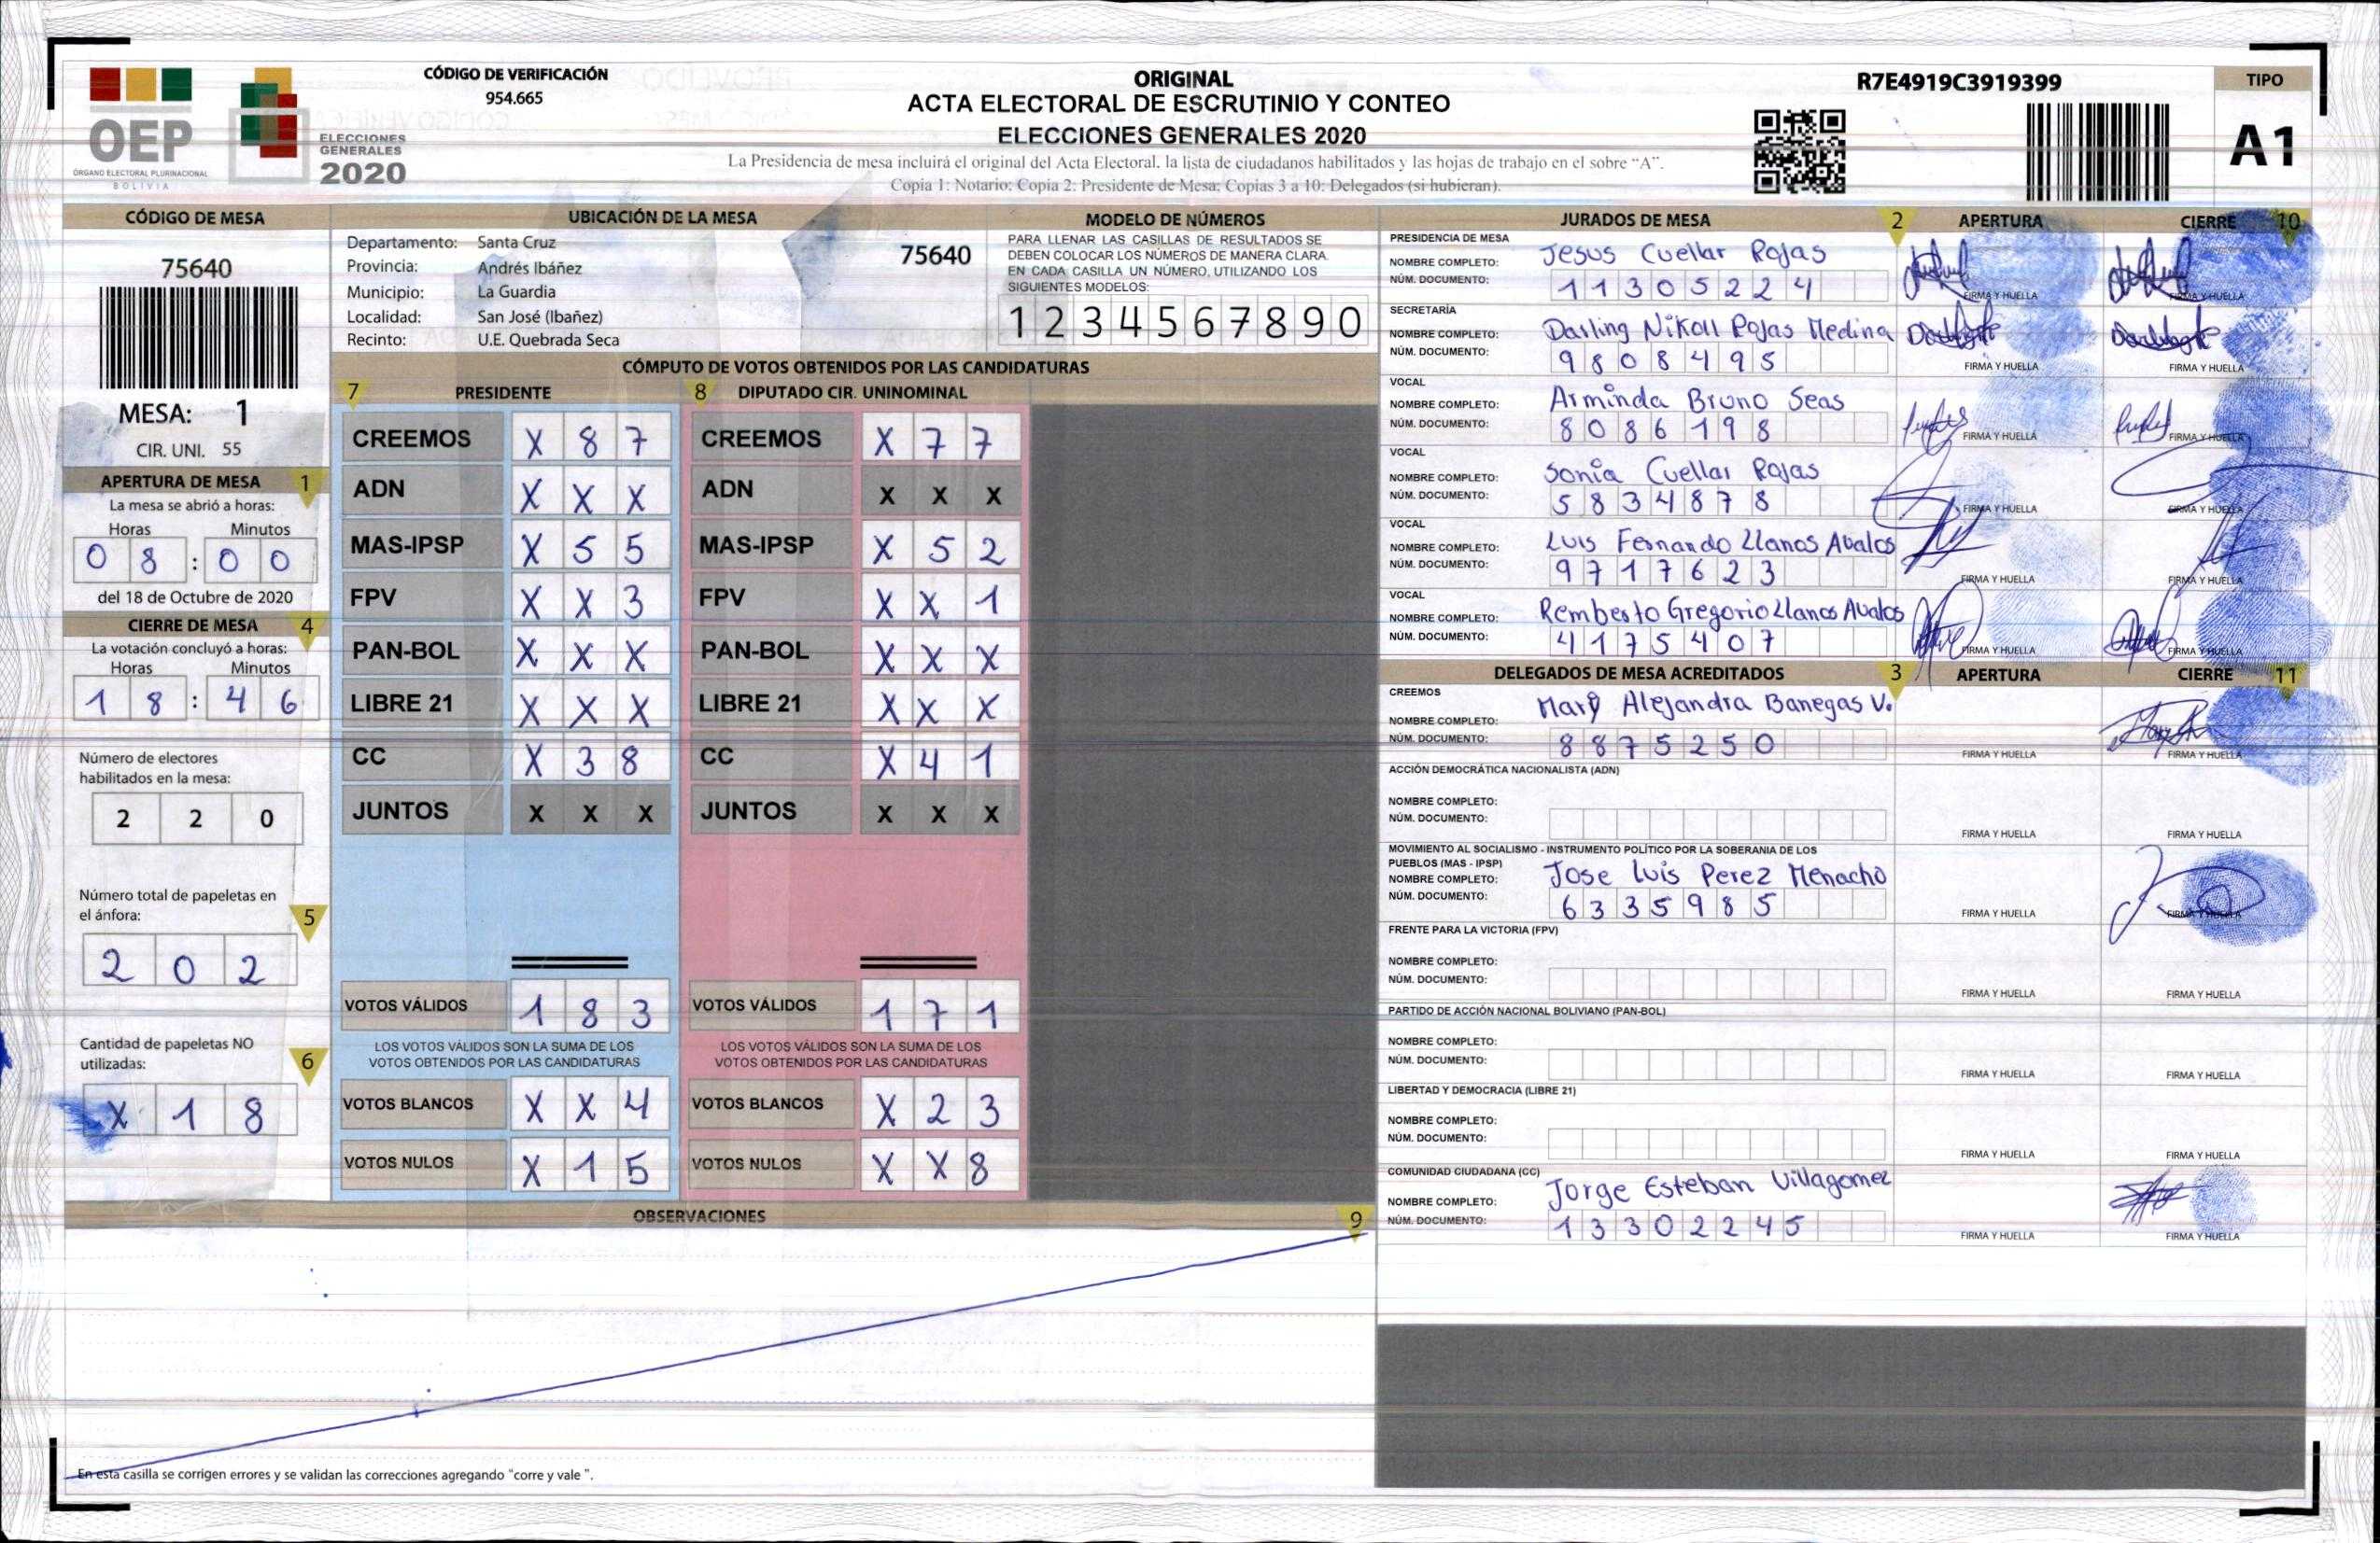 OEP
ÓRGANO ELECTORAL PLURINACIONAL
BOLIVIA
ELECCIONES
GENERALES
2020
CÓDIGO DE VERIFICACIÓN
954.665
ORIGINAL
ACTA ELECTORAL DE ESCRUTINIO Y CONTEO
ELECCIONES GENERALES 2020
La Presidencia de mesa incluirá el original del Acta Electoral, la lista de ciudadanos habilitados y las hojas de trabajo en el sobre “A”.
Copia 1: Notario; Copia 2: Presidente de Mesa; Copias 3 a 10: Delegados (si hubieran).
R7E4919C3919399
TIPO
A1
CÓDIGO DE MESA
75640
MESA: 1
CIR. UNI. 55
APERTURA DE MESA 1
La mesa se abrió a horas:
Horas Minutos
0 8 : 0 0
del 18 de Octubre de 2020
CIERRE DE MESA 4
La votación concluyó a horas:
Horas Minutos
1 8 : 4 6
Número de electores
habilitados en la mesa:
2 2 0
Número total de papeletas en
el ánfora: 5
2 0 2
Cantidad de papeletas NO
utilizadas: 6
X 1 8
UBICACIÓN DE LA MESA
Departamento: Santa Cruz
75640
Provincia: Andrés Ibáñez
Municipio: La Guardia
Localidad: San José (Ibañez)
Recinto: U.E. Quebrada Seca
MODELO DE NÚMEROS
PARA LLENAR LAS CASILLAS DE RESULTADOS SE
DEBEN COLOCAR LOS NÚMEROS DE MANERA CLARA.
EN CADA CASILLA UN NÚMERO, UTILIZANDO LOS
SIGUIENTES MODELOS:
1 2 3 4 5 6 7 8 9 0
CÓMPUTO DE VOTOS OBTENIDOS POR LAS CANDIDATURAS
7 PRESIDENTE 8 DIPUTADO CIR. UNINOMINAL
CREEMOS X 8 7 CREEMOS X 7 7
ADN X X X ADN X X X
MAS-IPSP X 5 5 MAS-IPSP X 5 2
FPV X X 3 FPV X X 1
PAN-BOL X X X PAN-BOL X X X
LIBRE 21 X X X LIBRE 21 X X X
CC X 3 8 CC X 4 1
JUNTOS X X X JUNTOS X X X
VOTOS VÁLIDOS 1 8 3 VOTOS VÁLIDOS 1 7 1
LOS VOTOS VÁLIDOS SON LA SUMA DE LOS LOS VOTOS VÁLIDOS SON LA SUMA DE LOS
VOTOS OBTENIDOS POR LAS CANDIDATURAS VOTOS OBTENIDOS POR LAS CANDIDATURAS
VOTOS BLANCOS X X 4 VOTOS BLANCOS X 2 3
VOTOS NULOS X 1 5 VOTOS NULOS X X 8
OBSERVACIONES 9
En esta casilla se corrigen errores y se validan las correcciones agregando "corre y vale ".
JURADOS DE MESA 2 APERTURA CIERRE 10
PRESIDENCIA DE MESA
NOMBRE COMPLETO: Jesus Cuellar Rojas
NÚM. DOCUMENTO: 11305224
FIRMA Y HUELLA FIRMA Y HUELLA
SECRETARÍA
NOMBRE COMPLETO: Darling Nikoll Rojas Medina
NÚM. DOCUMENTO: 9808495
FIRMA Y HUELLA FIRMA Y HUELLA
VOCAL
NOMBRE COMPLETO: Arminda Bruno Seas
NÚM. DOCUMENTO: 8086198
FIRMA Y HUELLA FIRMA Y HUELLA
VOCAL
NOMBRE COMPLETO: Sonia Cuellar Rojas
NÚM. DOCUMENTO: 5834878
FIRMA Y HUELLA FIRMA Y HUELLA
VOCAL
NOMBRE COMPLETO: Luis Fernando Llanos Avalos
NÚM. DOCUMENTO: 9717623
FIRMA Y HUELLA FIRMA Y HUELLA
VOCAL
NOMBRE COMPLETO: Remberto Gregorio Llanos Avalos
NÚM. DOCUMENTO: 4175407
FIRMA Y HUELLA FIRMA Y HUELLA
DELEGADOS DE MESA ACREDITADOS 3 APERTURA CIERRE 11
CREEMOS
NOMBRE COMPLETO: Mary Alejandra Banegas V.
NÚM. DOCUMENTO: 8875250
FIRMA Y HUELLA FIRMA Y HUELLA
ACCIÓN DEMOCRÁTICA NACIONALISTA (ADN)
NOMBRE COMPLETO:
NÚM. DOCUMENTO:
FIRMA Y HUELLA FIRMA Y HUELLA
MOVIMIENTO AL SOCIALISMO - INSTRUMENTO POLÍTICO POR LA SOBERANIA DE LOS
PUEBLOS (MAS - IPSP)
NOMBRE COMPLETO: Jose Luis Perez Menacho
NÚM. DOCUMENTO: 6335985
FIRMA Y HUELLA FIRMA Y HUELLA
FRENTE PARA LA VICTORIA (FPV)
NOMBRE COMPLETO:
NÚM. DOCUMENTO:
FIRMA Y HUELLA FIRMA Y HUELLA
PARTIDO DE ACCIÓN NACIONAL BOLIVIANO (PAN-BOL)
NOMBRE COMPLETO:
NÚM. DOCUMENTO:
FIRMA Y HUELLA FIRMA Y HUELLA
LIBERTAD Y DEMOCRACIA (LIBRE 21)
NOMBRE COMPLETO:
NÚM. DOCUMENTO:
FIRMA Y HUELLA FIRMA Y HUELLA
COMUNIDAD CIUDADANA (CC)
NOMBRE COMPLETO: Jorge Esteban Villagomez
NÚM. DOCUMENTO: 13302245
FIRMA Y HUELLA FIRMA Y HUELLA